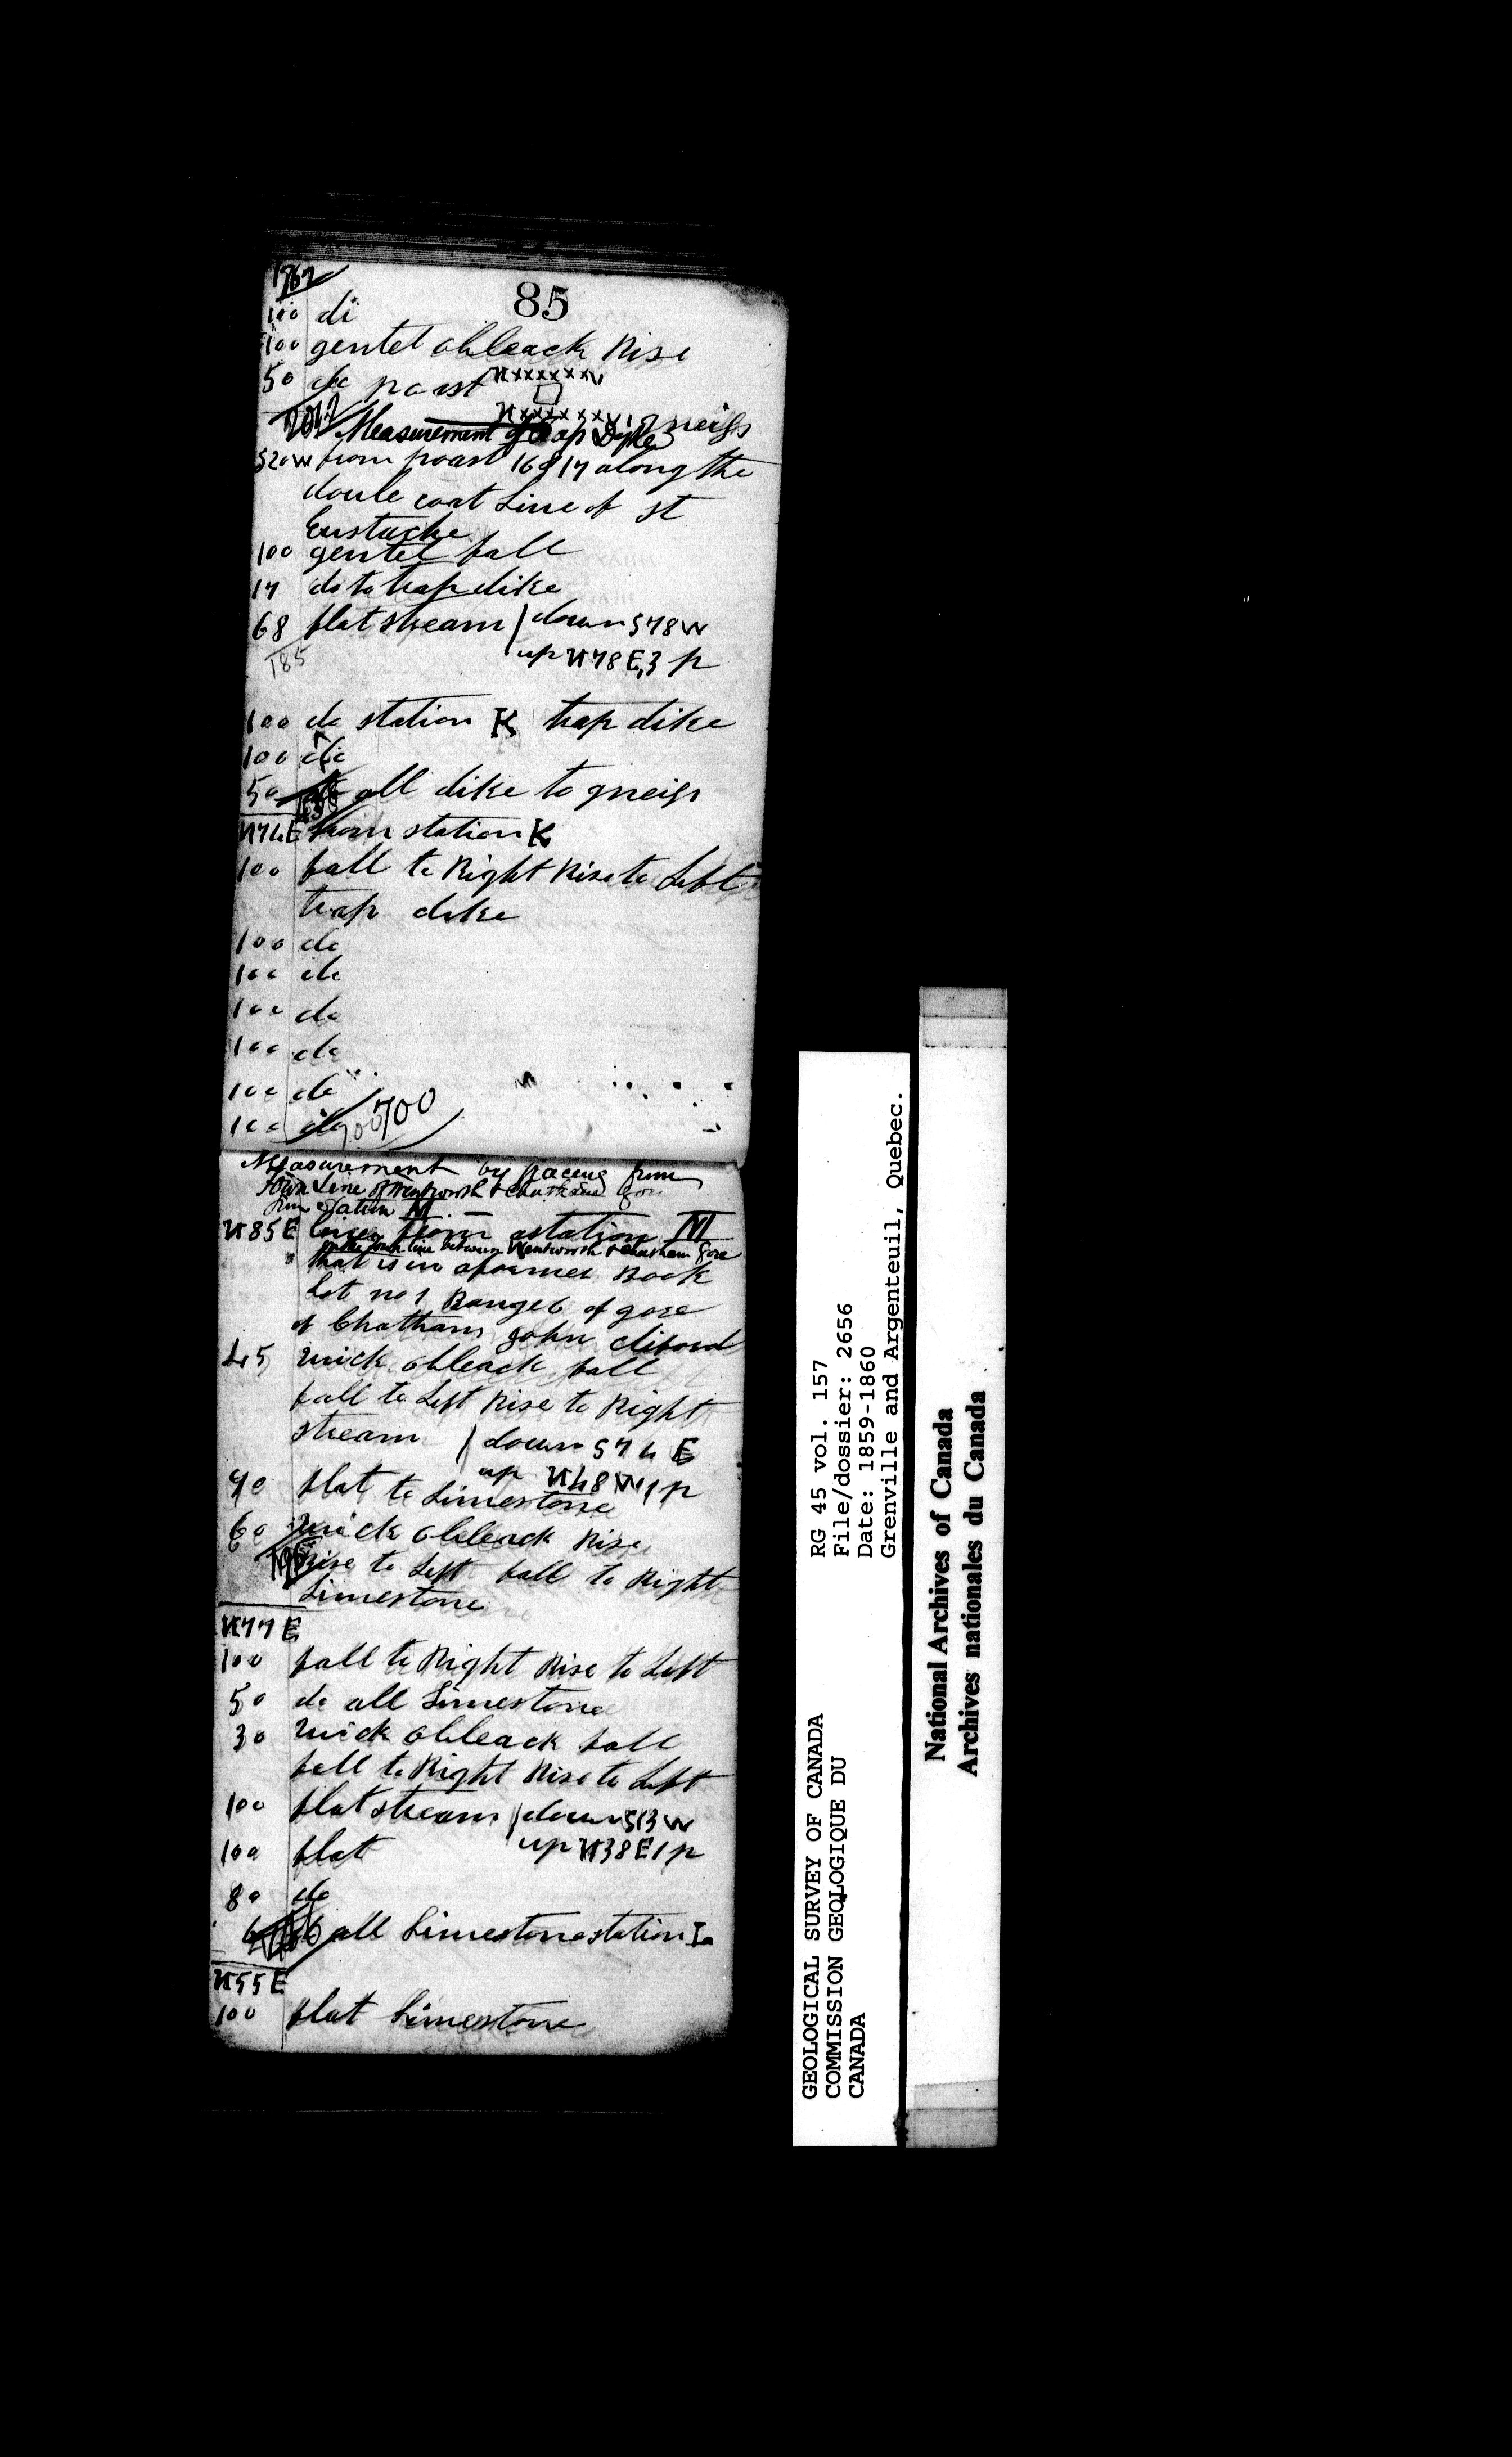 1767
85
100 do
100 gentel obleack Rise
50 do poast NxxxxxxxV
NxxxxxxxV gneiss
2017 Measurement of Trap Dyke
S20W from poast 16 & 17 along the
doule coat Line of st
Eustache
100 gentel fall
17 do to trap dike
68 flat stream / down S78W
185 up N78E, 3 p
100 do station K trap dike
100 do
50 all dike to gneiss
N74E from station K
100 fall to Right Rise to Left
trap dike
100 do
100 do
100 do
100 do
100 do
100 do
100 do 700 700
Measurement by paceing from
Town Line of Wentworth & Chatham Gore
from Station M
N85E from astation M
on the town line between Wentworth & Chatham Gore
that is in aformer Book
Lot no 1 Range 6 of gore
of Chatham john
45 quick obleack fall
fall to Left Rise to Right
stream / down S74E
up N48W, 1 p
90 flat to Limestone
60 quick obleack Rise
195 Rise to Left fall to Right
Limestone
N77E
100 fall to Right Rise to Left
50 do all Limestone
30 quick obleack fall
fall to Right Rise to Left
100 flat stream / down S13W
100 flat up N38E 1 p
80 do
6 all Limestone station
N55E
100 flat Limestone
GEOLOGICAL SURVEY OF CANADA
COMMISSION GEOLOGIQUE DU
CANADA
RG 45 vol. 157
File/dossier: 2656
Date: 1859-1860
Grenville and Argenteuil, Quebec.
National Archives of Canada
Archives nationales du Canada